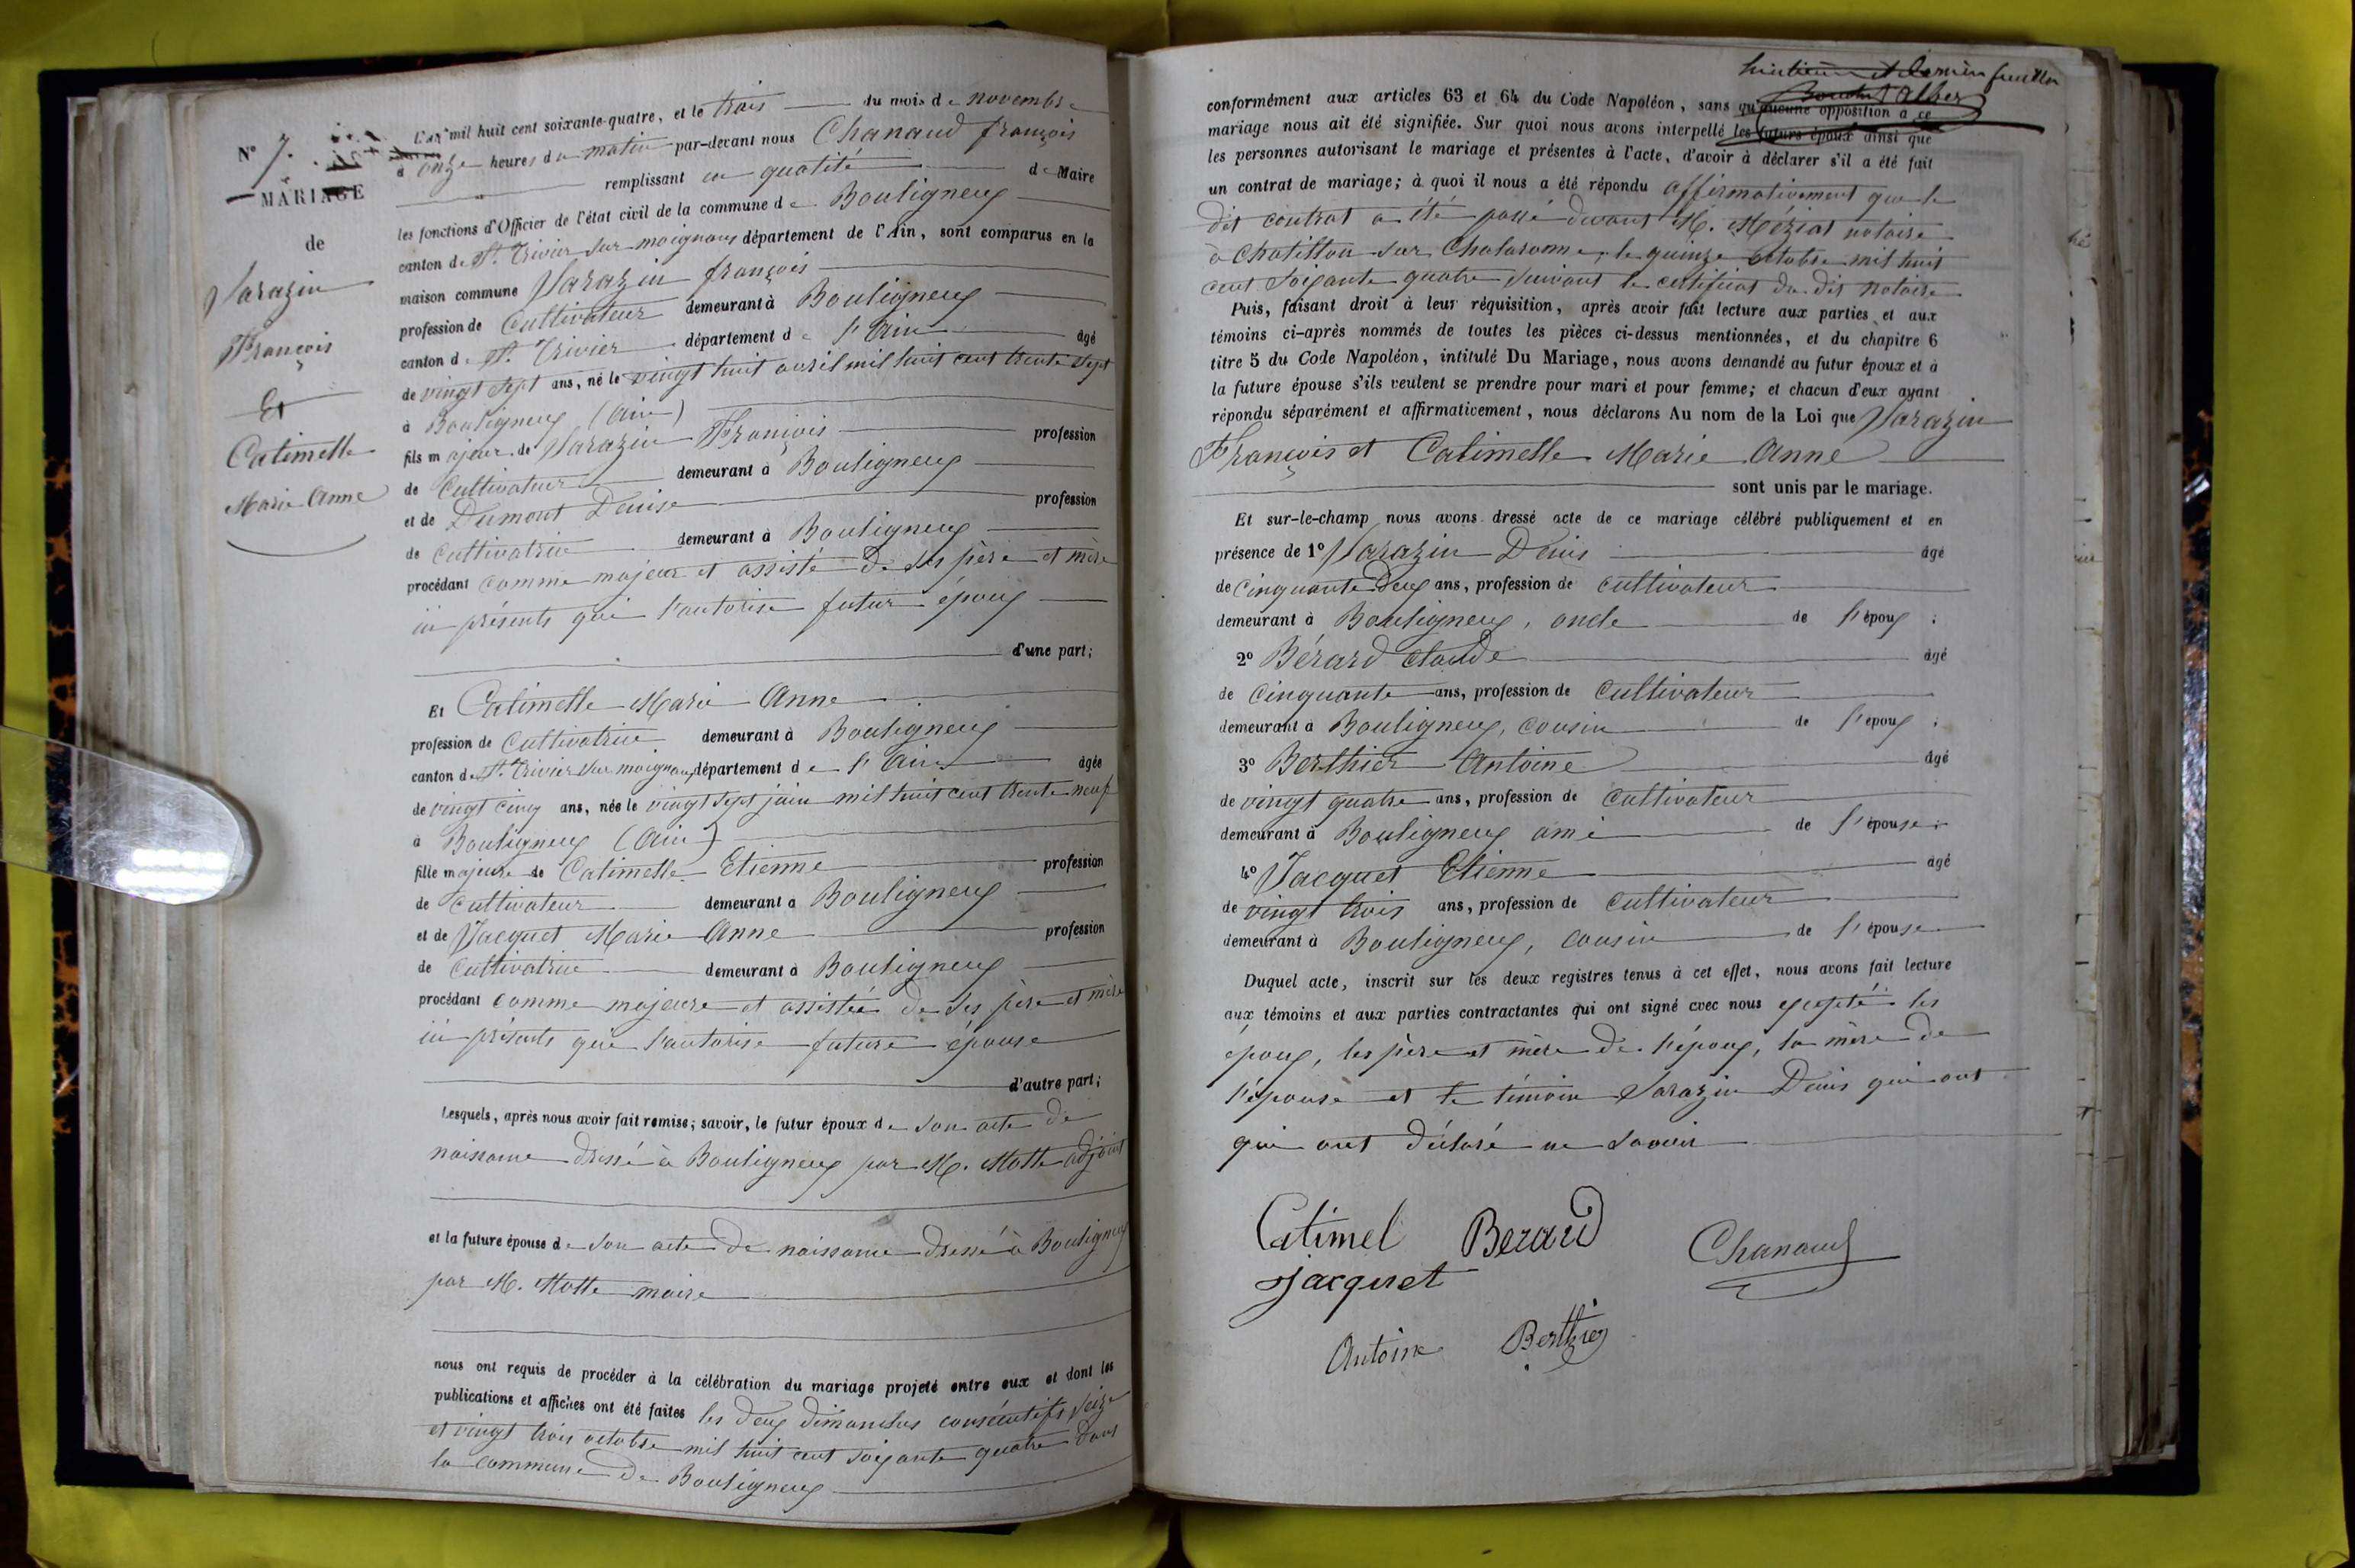 N° 7.
MARIAGE
de
Sarazin
François
Et
Catimelle
Marie Anne
L'an mil huit cent soixante-quatre, et le trois du mois de novembre
à onze heures du matin par-devant nous Chanaud françois
remplissant en qualité de Maire
les fonctions d'Officier de l'état civil de la commune de Bouligneux
canton de St. Trivier sur moignans département de l'Ain, sont comparus en la
maison commune Sarazin françois
profession de Cultivateur demeurant à Bouligneux
canton de St. Trivier département de l'Ain âgé
de vingt sept ans, né le vingt huit avril mil huit cent trente sept
à Bouligneux (Ain)
fils majeur de Sarazin François profession
de Cultivateur demeurant à Bouligneux
et de Dumont Denise profession
de Cultivatrice demeurant à Bouligneux
procédant comme majeur et assisté de ses père et mère
ici présents qui l'autorise futur époux
d'une part;
Et Catimelle Marie Anne
profession de Cultivatrice demeurant à Bouligneux
canton de St. Trivier sur moignans département de l'Ain âgée
de vingt cinq ans, née le vingt sept juin mil huit cent trente neuf
à Bouligneux (Ain)
fille majeure de Catimelle Etienne profession
de Cultivateur demeurant à Bouligneux
et de Jacquet Marie Anne profession
de Cultivatrice demeurant à Bouligneux
procédant comme majeure et assistée de ses père et mère
ici présents qui l'autorise future épouse
d'autre part;
Lesquels, après nous avoir fait remise; savoir, le futur époux de son acte de
naissance dressé à Bouligneux par M. Motte adjoint
et la future épouse de son acte de naissance dressé à Bouligneux
par M. Motte maire
nous ont requis de procéder à la célébration du mariage projeté entre eux et dont les
publications et affiches ont été faites les deux dimanches consécutifs seize
et vingt trois octobre mil huit cent soixante quatre dans
la commune de Bouligneux
huitième et dernier feuillet
conformément aux articles 63 et 64 du Code Napoléon, sans qu'aucune opposition à ce
mariage nous ait été signifiée. Sur quoi nous avons interpellé les futurs époux ainsi que
les personnes autorisant le mariage et présentes à l'acte, d'avoir à déclarer s'il a été fait
un contrat de mariage; à quoi il nous a été répondu affirmativement que le
dit contrat a été passé devant M. Méziat notaire
à Chatillon sur Chalaronne, le quinze octobre mil huit
cent soixante quatre suivant le certificat du dit notaire
Puis, faisant droit à leur réquisition, après avoir fait lecture aux parties et aux
témoins ci-après nommés de toutes les pièces ci-dessus mentionnées, et du chapitre 6
titre 5 du Code Napoléon, intitulé Du Mariage, nous avons demandé au futur époux et à
la future épouse s'ils veulent se prendre pour mari et pour femme; et chacun d'eux ayant
répondu séparément et affirmativement, nous déclarons Au nom de la Loi que Sarazin
François et Catimelle Marie Anne
sont unis par le mariage.
Et sur-le-champ nous avons dressé acte de ce mariage célébré publiquement et en
présence de 1° Sarazin Denis âgé
de Cinquante deux ans, profession de cultivateur
demeurant à Bouligneux, oncle de l'époux;
2° Bérard Claude âgé
de Cinquante ans, profession de Cultivateur
demeurant à Bouligneux, cousin de l'époux;
3° Berthier Antoine âgé
de vingt quatre ans, profession de Cultivateur
demeurant à Bouligneux ami de l'épouse;
4° Jacquet Etienne âgé
de vingt trois ans, profession de Cultivateur
demeurant à Bouligneux, cousin de l'épouse
Duquel acte, inscrit sur les deux registres tenus à cet effet, nous avons fait lecture
aux témoins et aux parties contractantes qui ont signé avec nous excepté les
époux, les père et mère de l'époux, la mère de
l'épouse et le témoin Sarazin Denis qui ont
qui ont déclaré ne savoir
Catimel Berard Chanaud
Jacquet
Antoine Berthier